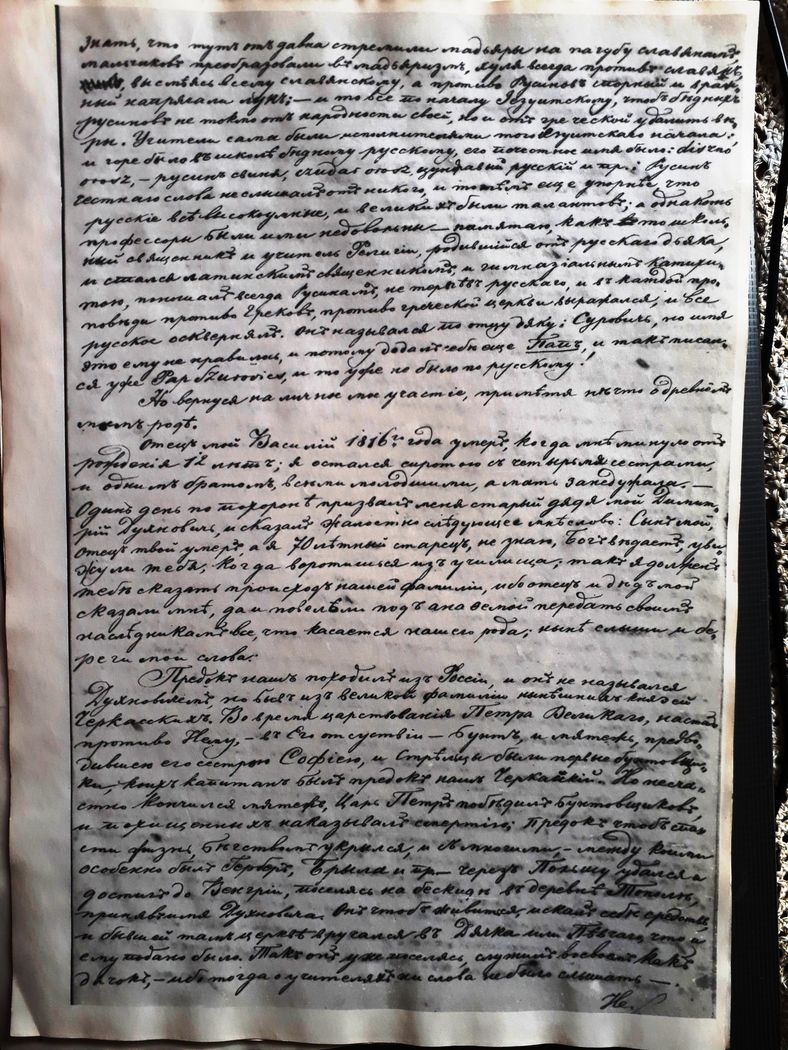 знать, что тутъ отъ давна стремили мадьяры на пагубу славянамъ,
мальчиковъ преобразовали въ мадьяризмъ, хуля всегда противъ славянъ,
высмѣясь всему славянскому, а противо Русиновъ спорный и враж-
ный напрягали лукъ; — и то все по началу Іезуитскому, чтобъ бѣдныхъ
русиновъ не токмо отъ народности своей, но и отъ греческой удалить вѣ-
ры. Учители сами были исполнителями того Іезуитскаго начала;
и горе было въ школѣ бѣдному русскому, его почестное имя было: disznó
orosz, — русинъ свиня, csúda orosz, русскій и пр: Русинъ
честнаго слова не слышалъ отъ никого, и то тѣмъ еще упорнѣе, что
русскіе всѣ высокоумны, и великихъ были талантовъ; а однакожъ
профессоры были ими недовольны — памятаю, какъ то школь-
ный священникъ и учитель Религіи, родившійся отъ русскаго дьяка,
и стался латинскимъ священникомъ, и гимназіальнымъ катихи-
тою, пакалъ всегда Русинамъ, не терпѣвъ русскаго, и въ каждой про-
повѣди противо Грековъ, противо греческой церкви выражался, и все
русское осквернялъ. Онъ назывался по отцу дяку: Суровичь, но имя
это ему не нравилось, и потому додалъ себѣ еще Папъ, и такъ писал-
ся уже Pap Szurovics, и то уже не было по русскому!
Но вернуся на личное мы участіе, примѣтя нѣчто о древнѣмъ
моемъ родѣ.
Отецъ мой Василій 1816го года умеръ, когда мнѣ минуло отъ
рожденія 12 лѣтъ; я остался сиротою съ четырьмя сестрами,
и однимъ братомъ, всѣми молодшими, а мать занедужала. —
Одинъ день по похоронѣ призвалъ меня старый дядя мой Димит-
рій Духновичь, и сказалъ жалостно слѣдующее мнѣ слово: Сынъ мой,
отецъ твой умеръ, а я 70лѣтный старецъ, не знаю, Богъ вѣдаетъ, уви-
жу ли тебя, когда воротишься изъ училища; такъ я долженъ
тебѣ сказать происходъ нашей фамиліи, ибо отецъ и дѣдъ мой
сказали мнѣ, да и повелѣли подъ анаѳемой передать своимъ
наслѣдникамъ все, что касается нашего рода; нынѣ слыши и бе-
реги мои слова:
Предокъ нашъ походилъ изъ Россіи, и онъ не назывался
Духновичемъ, но бывъ изъ великой фамиліи нынѣшнихъ князей
Черкасскихъ. Во время царствованія Петра Великаго, насталъ
противо Нему, — въ Его отсуствіи — Бунтъ, и мятежъ, предво-
дившею его сестрою Софіею, и Стрѣльцы были первые бунтовщи-
ки, коихъ капитанъ былъ предокъ нашъ Черкаскій. Но неща-
стно кончился мятежъ, Царь Петръ побѣдилъ Бунтовщиковъ,
и похищенныхъ наказывалъ смертію; предокъ чтобъ спа-
сти жизнь бѣгствомъ укрылся, и съ многими, — между коими
особенно былъ Герберъ, Брыла и пр — черезъ Польщу удался и
достигъ до Венгріи, поселясь на бескидѣ въ деревнѣ Тополи,
принявъ имя Духновича. Онъ чтобъ живитися, искалъ себѣ средства,
и бывшей тамъ церквѣ вручался въ Дяка или Пѣвчаго, что и
ему подано было. Такъ онъ уже поселясь, служилъ всевсемъ какъ
дячокъ, — ибо тогда о учителяхъ ни слова не было слышать —.
Не.